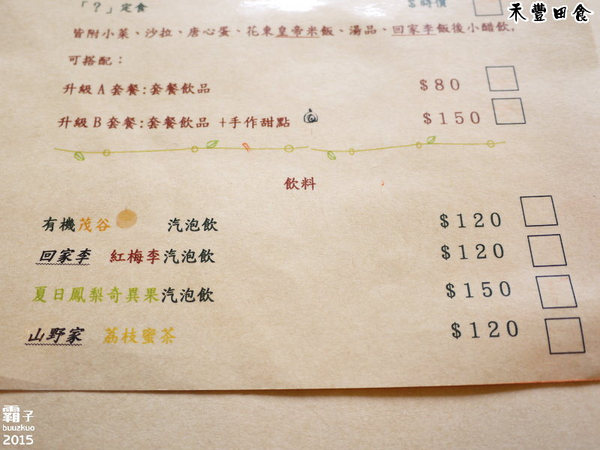 「?」定食 $時價
禾豐田食
皆附小菜、沙拉、唐心蛋、花東皇帝米飯、湯品、回家李飯後小醋飲,
可搭配:
升級A套餐:套餐飲品 $80
升級B套餐:套餐飲品+手作甜點 $150
飲料
有機茂谷 汽泡飲 $120
回家李 紅梅李汽泡飲 $120
夏日鳳梨奇異果汽泡飲 $150
山野家 荔枝蜜茶 $120
霸子
buuzkuo
2015